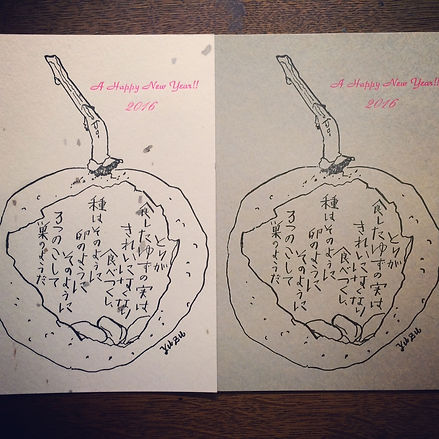 A Happy New Year!!
2016
とりが
食したゆずの実は
きれいになくなり
食べつくし
種はそのように
卵のように
そのように
3つのこして
巣のようだ
A Happy New Year!!
2016
とりが
食したゆずの実は
きれいになくなり
食べつくし
種はそのように
卵のように
そのように
3つのこして
巣のようだ